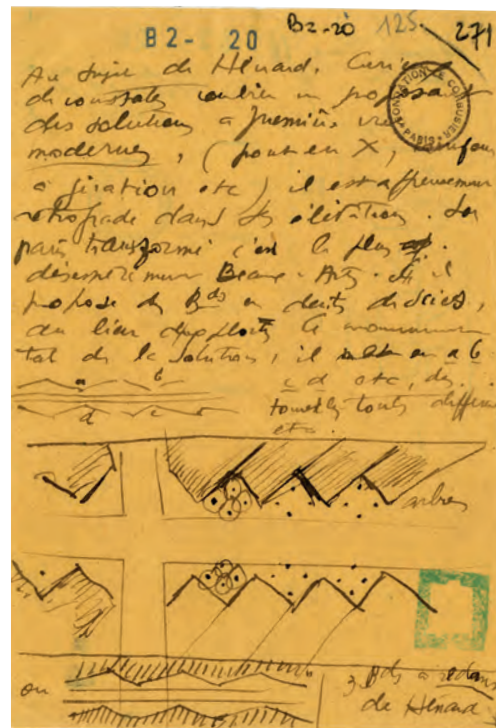 B2-20
B2-20 125. 271
Au sujet de Hénard. Curieux
de constater combien en proposant
des solutions à première vue
modernes, (pont en X, carrefour
à giration etc) il est affreusement
rétrograde dans ses élévations. Son
paris transformé c'est le plus
désespérément Beaux-Arts. Et il
propose des Bds en dents de scies,
au lieu d'exploiter le monumen
tal de la solution, il en a b
c d etc, des
toutes différen
etc.
a b
d c
FONDATION LE CORBUSIER
PARIS
arbres
ou
3 Bds à redans
de Hénard.